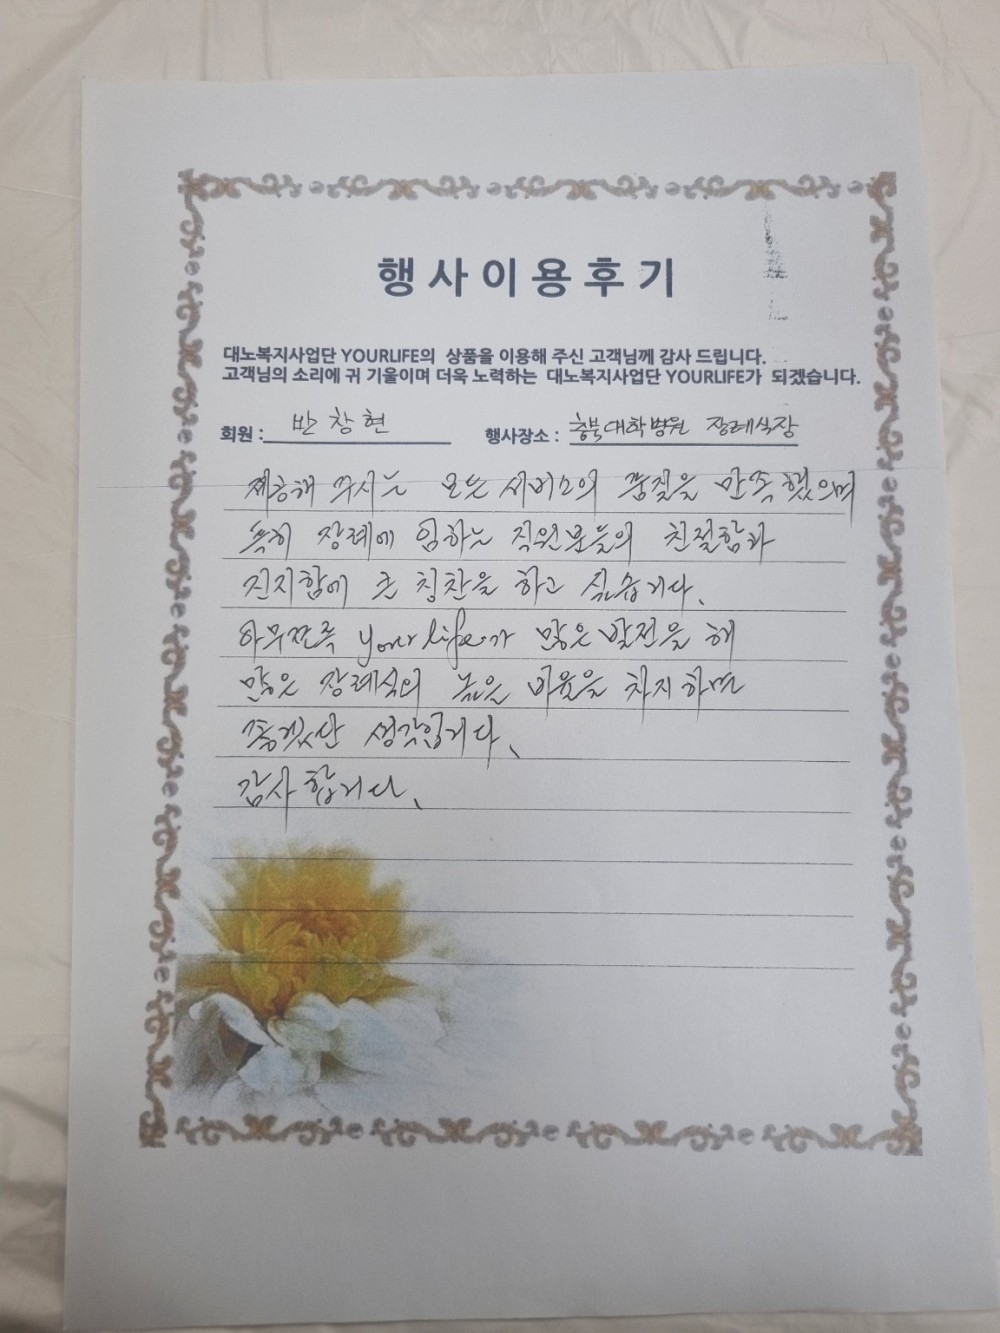 행사이용후기
대노복지사업단 YOURLIFE의 상품을 이용해 주신 고객님께 감사 드립니다.
고객님의 소리에 귀 기울이며 더욱 노력하는 대노복지사업단 YOURLIFE가 되겠습니다.
회원 : 반창현 행사장소 : 충북대학병원 장례식장
제공해 주시는 모든 서비스의 품질을 만족했으며
특히 장례에 임하는 직원분들의 친절함과
진지함에 큰 칭찬을 하고 싶습니다.
아무쪼록 your life가 많은 발전을 해
많은 장례식의 높은 비율을 차지하면
좋겠단 생각합니다.
감사합니다.